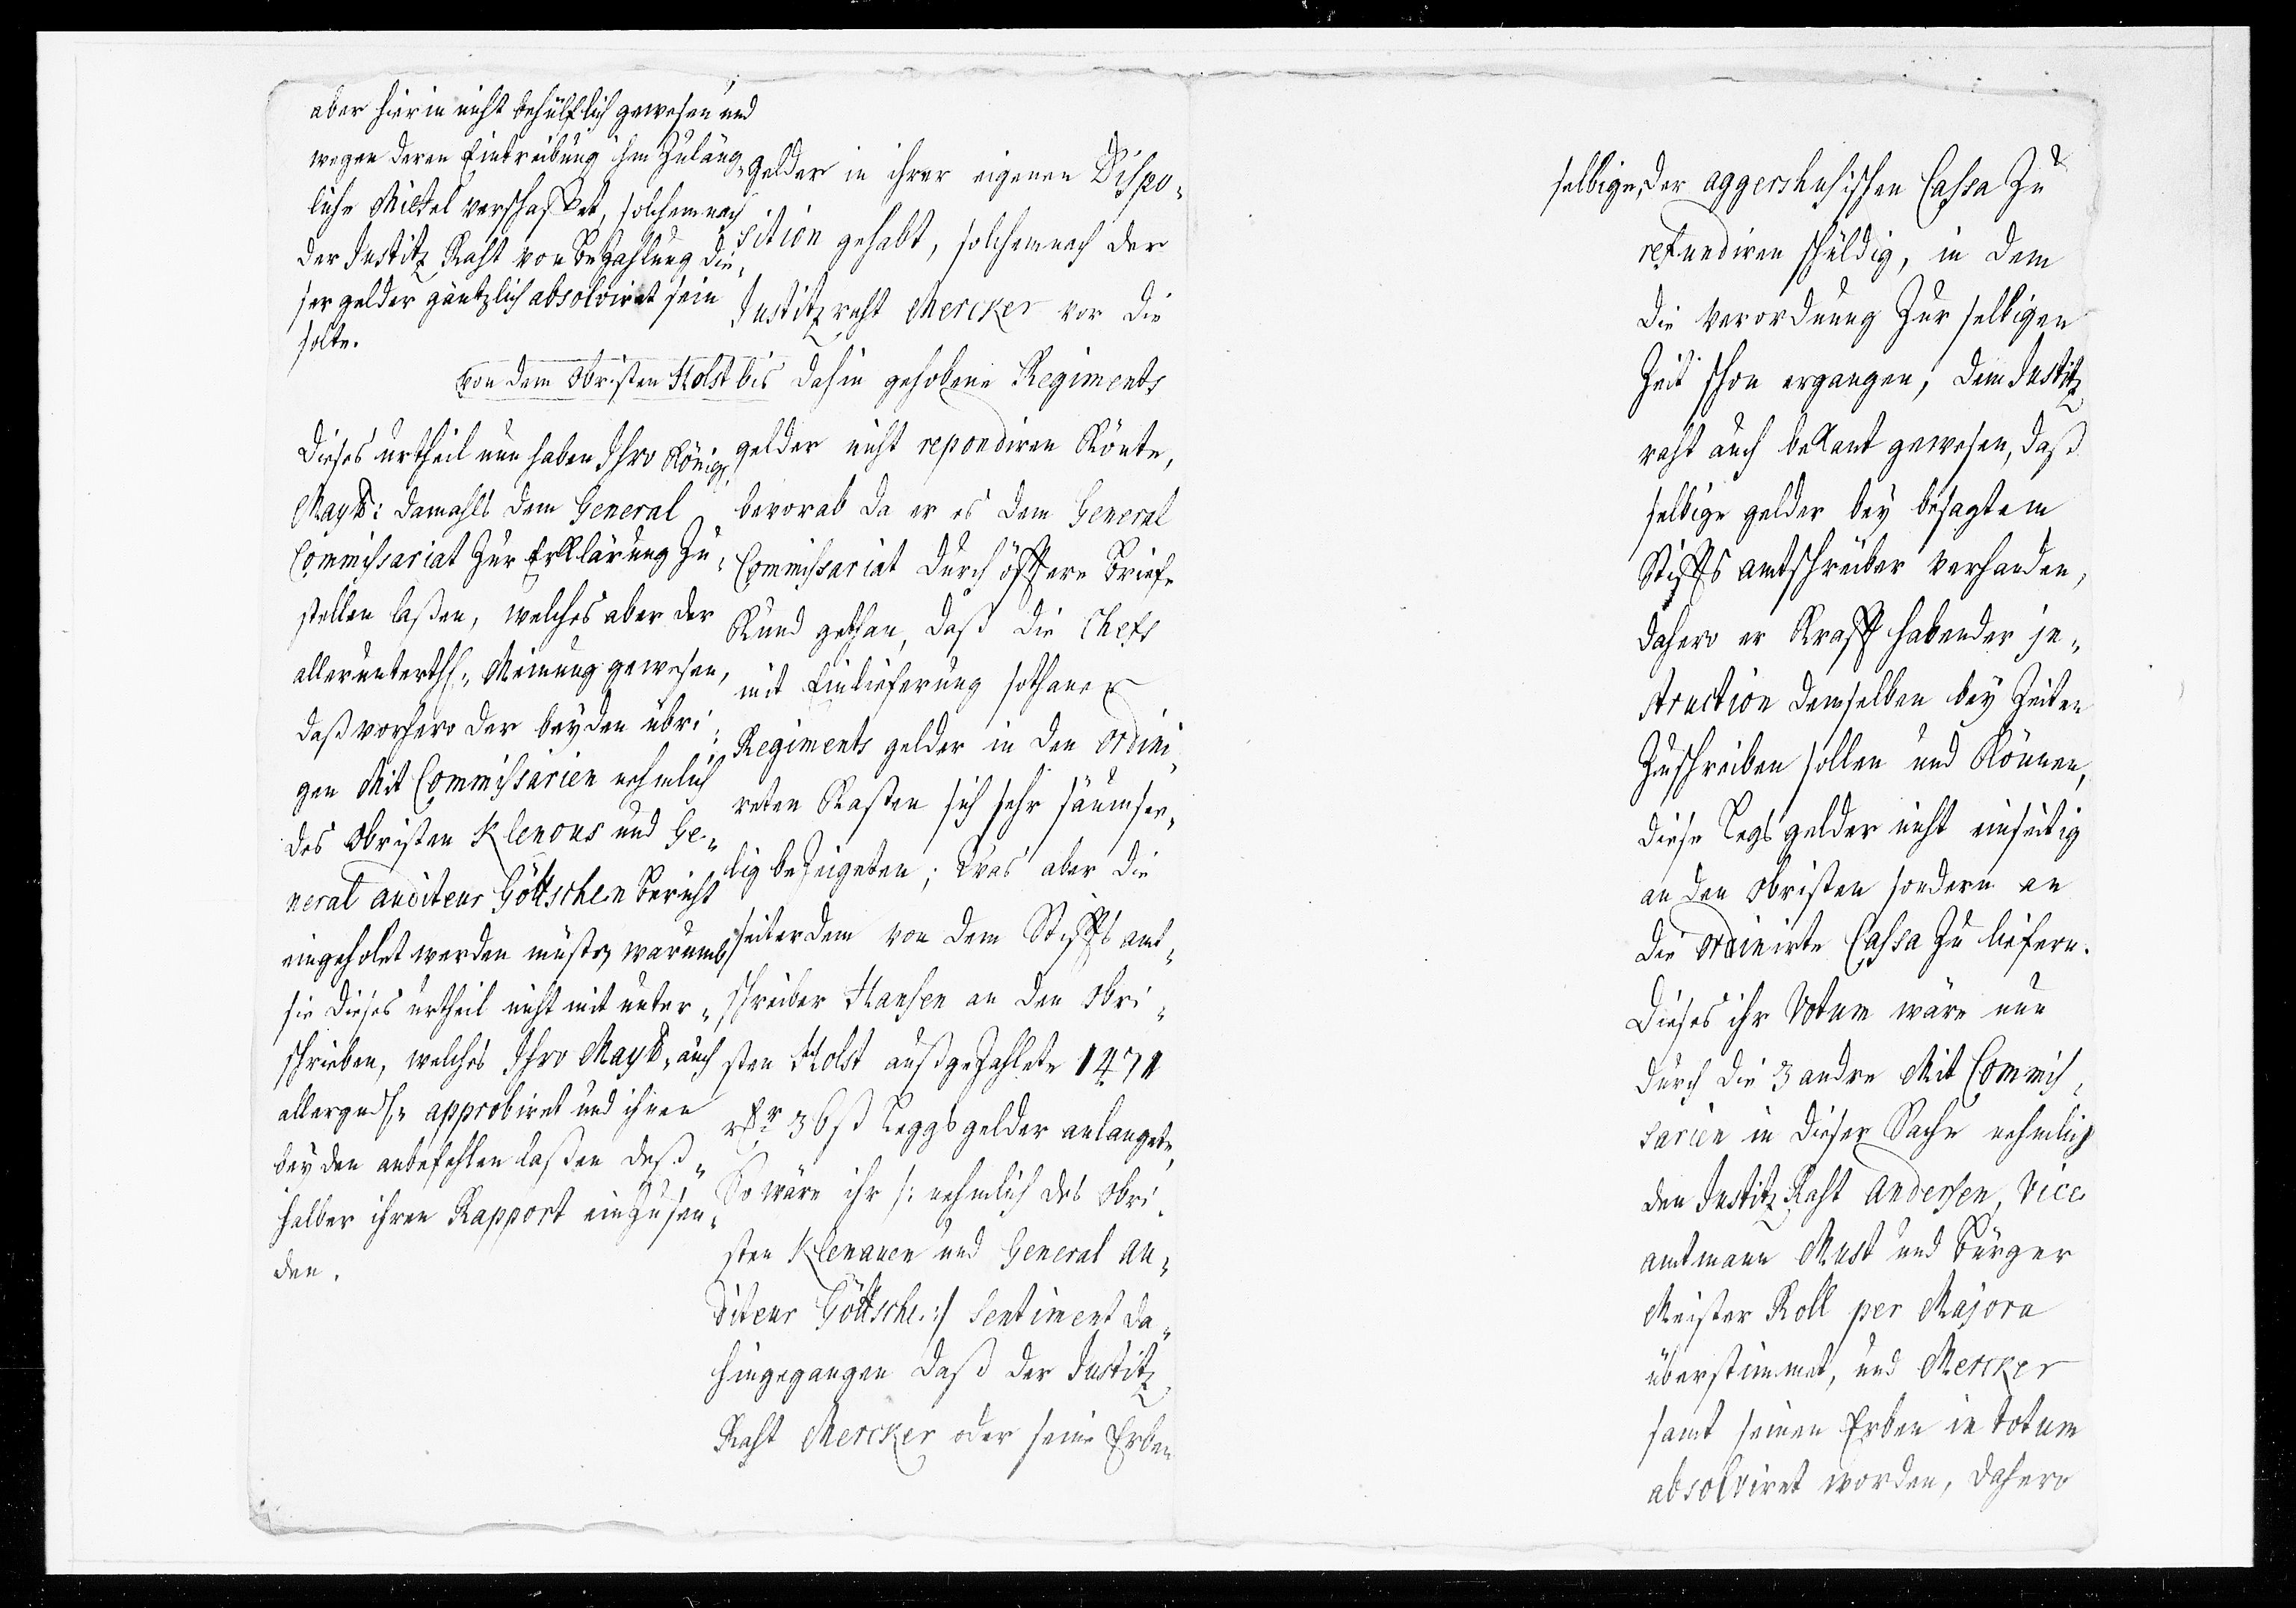 aber hierin nicht behülfflich gewesen und
wegen deren Eintreibung ihm Zuläng„
liche Mittel verschaffet, solchemnach
der Justitz Raht von Bezahlung die„
ser gelder gäntzlich absolviret sein
solte.
Dieses urtheil nun haben Ihro Königl.
Maytt: damahls dem General
Commissariat Zur Erklärung Zu„
stellen laßen, welches aber der
allerunterth:„ Meinung gewesen,
daß vorhero der beyden übri„
gen Mit Commissarien nehmlich
des Obristen Klenous und Ge„
neral auditeur Göttschen Bericht
eingeholet werden müste, warumb
sie dieses urtheil nicht mit unter„
schrieben, welches Ihro Maytt. auch
allergndst„ approbiret und ihnen
beyden anbefehlen laßen deß„
halber ihren Rapport einzusen„
den.
gelder in ihrer eigenen Dispo„
sition gehabt, solchemnach der
Justitzraht Mercker vor die
von dem Obristen Holst bis dahin gehobene Regiments
gelder nicht repondiren Könte,
bevorab da er es dem General
Commissariat durch öfftere Briefe
Kund gethan, daß die Chefs
mit Einlieferung sothaner
Regiments gelder in den ordini„
reten Kasten sich sehr säumse„
lig bezeigeten; Was aber die
seiterdem von dem Stiffts amt„
schreiber Hansen an den Obri„
sten Holst außgezahlete 1471
rdr 36 ß Leggsgelder anlangete,
So wäre ihr /: nehmlich des Obri„
sten Klenauen und General au„
diteur Göttsche :/ Sentiment da„
hingegangen daß der Justitz
Raht Mercker oder seine Erben
selbige, der aggershusischen Cassa Zu
refundiren schuldig, in dem
die verordnung Zur selbigen
Zeit schon ergangen, dem Justitz
raht auch bekant gewesen, daß
selbige gelder bey besagtem
Stiffts amtschreiber verhanden,
dahero er Krafft habender in„
struction demselben bey Zeiten
Zuschreiben sollen und Können,
diese Legs gelder nicht einseitig
an den Obristen sondern an
die ordinirte Cassa Zu liefern.
Dieses ihr Votum wäre nun
durch die 3 andre Mit Commis„
sarien in dieser Sache nehmlich
den Justitz Raht Andersen, Vice
amtmann Must und Bürger
Meister Roll per Majora
überstimmet, und Mercker
samt seinen Erben in totum
absolviret worden, dahero